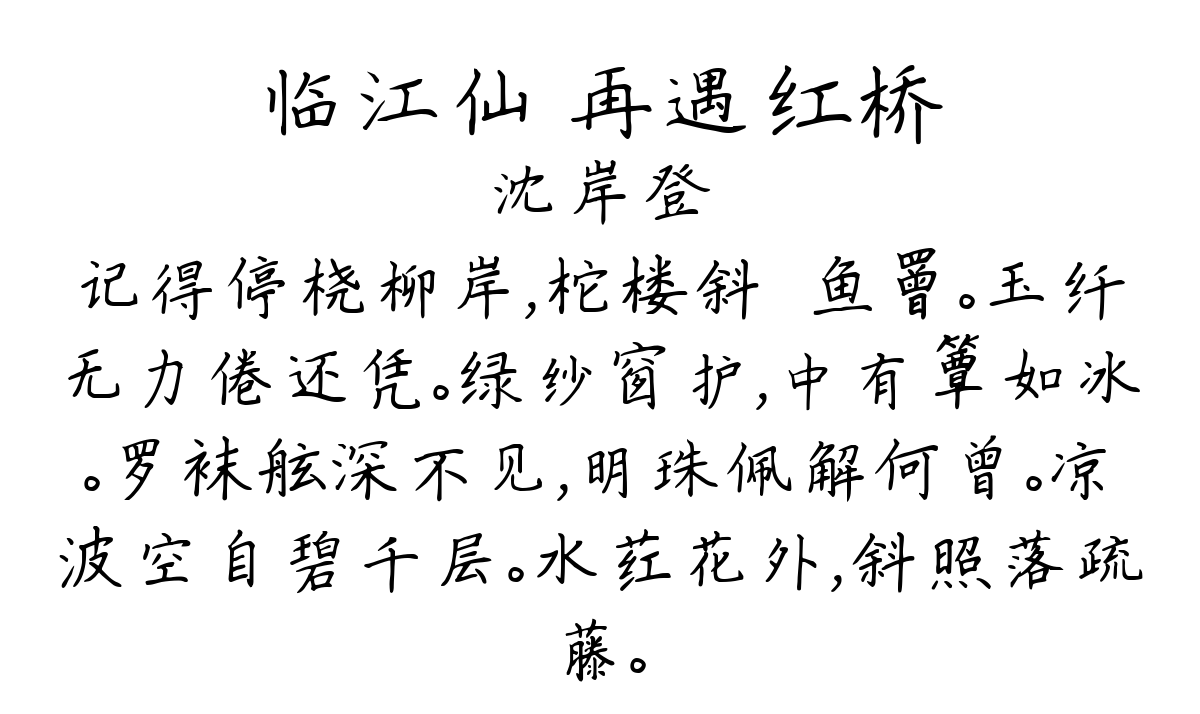 临江仙 再遇红桥
沈岸登
记得停桡柳岸,柁楼斜 鱼罾。玉纤
无力倦还凭。绿纱窗护,中有簟如冰
。罗袜舷深不见,明珠佩解何曾。凉
波空自碧千层。水荭花外,斜照落疏
藤。